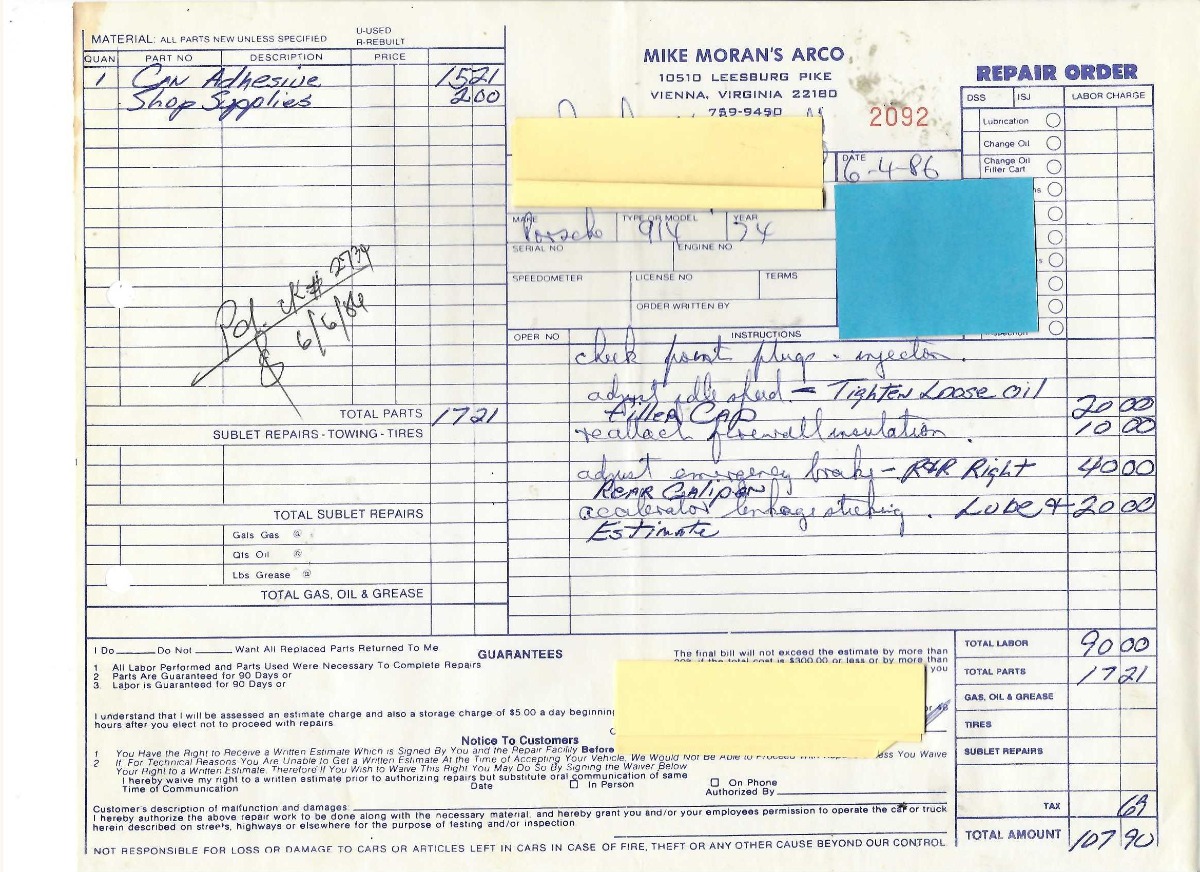 MATERIAL: ALL PARTS NEW UNLESS SPECIFIED
U-USED
R-REBUILT
QUAN PART NO DESCRIPTION PRICE
1 Can Adhesive 15 21
Shop Supplies 2 00
Pd. CK# 2739
6/6/86
TOTAL PARTS 17 21
SUBLET REPAIRS - TOWING - TIRES
TOTAL SUBLET REPAIRS
Gals Gas @
Qts Oil @
Lbs Grease @
TOTAL GAS, OIL & GREASE
MIKE MORAN'S ARCO
10510 LEESBURG PIKE
VIENNA, VIRGINIA 22180
759-9490
2092
REPAIR ORDER
DSS ISJ LABOR CHARGE
Lubrication
Change Oil
Change Oil
Filter Cart
DATE
6-4-86
MAKE TYPE OR MODEL YEAR
Porsche 914 74
SERIAL NO ENGINE NO
SPEEDOMETER LICENSE NO TERMS
ORDER WRITTEN BY
OPER NO INSTRUCTIONS
check point plugs - injection.
adjust idle speed - Tighten Loose Oil
Filler Cap 20 00
reattach firewall insulation. 10 00
adjust emergency brake - R&R Right 40 00
Rear Caliper
accelerator linkage sticking. Lube + 20 00
Estimate
I Do Do Not Want All Replaced Parts Returned To Me
GUARANTEES
1 All Labor Performed and Parts Used Were Necessary To Complete Repairs
2 Parts Are Guaranteed for 90 Days or
3. Labor is Guaranteed for 90 Days or
The final bill will not exceed the estimate by more than
if the total cost is $300.00 or less or by more than
you
I understand that I will be assessed an estimate charge and also a storage charge of $5.00 a day beginning
hours after you elect not to proceed with repairs
Notice To Customers
1 You Have the Right to Receive a Written Estimate Which is Signed By You and the Repair Facility Before
2 If For Technical Reasons You Are Unable to Get a Written Estimate At the Time of Accepting Your Vehicle, We Would Not Be Able to Proceed With
less You Waive
Your Right to a Written Estimate. Therefore If You Wish to Waive This Right You May Do So By Signing the Waiver Below
I hereby waive my right to a written estimate prior to authorizing repairs but substitute oral communication of same
Time of Communication Date In Person On Phone
Authorized By
Customer's description of malfunction and damages:
I hereby authorize the above repair work to be done along with the necessary material, and hereby grant you and/or your employees permission to operate the car or truck
herein described on streets, highways or elsewhere for the purpose of testing and/or inspection
NOT RESPONSIBLE FOR LOSS OR DAMAGE TO CARS OR ARTICLES LEFT IN CARS IN CASE OF FIRE, THEFT OR ANY OTHER CAUSE BEYOND OUR CONTROL.
TOTAL LABOR 90 00
TOTAL PARTS 17 21
GAS, OIL & GREASE
TIRES
SUBLET REPAIRS
TAX 69
TOTAL AMOUNT 107 90